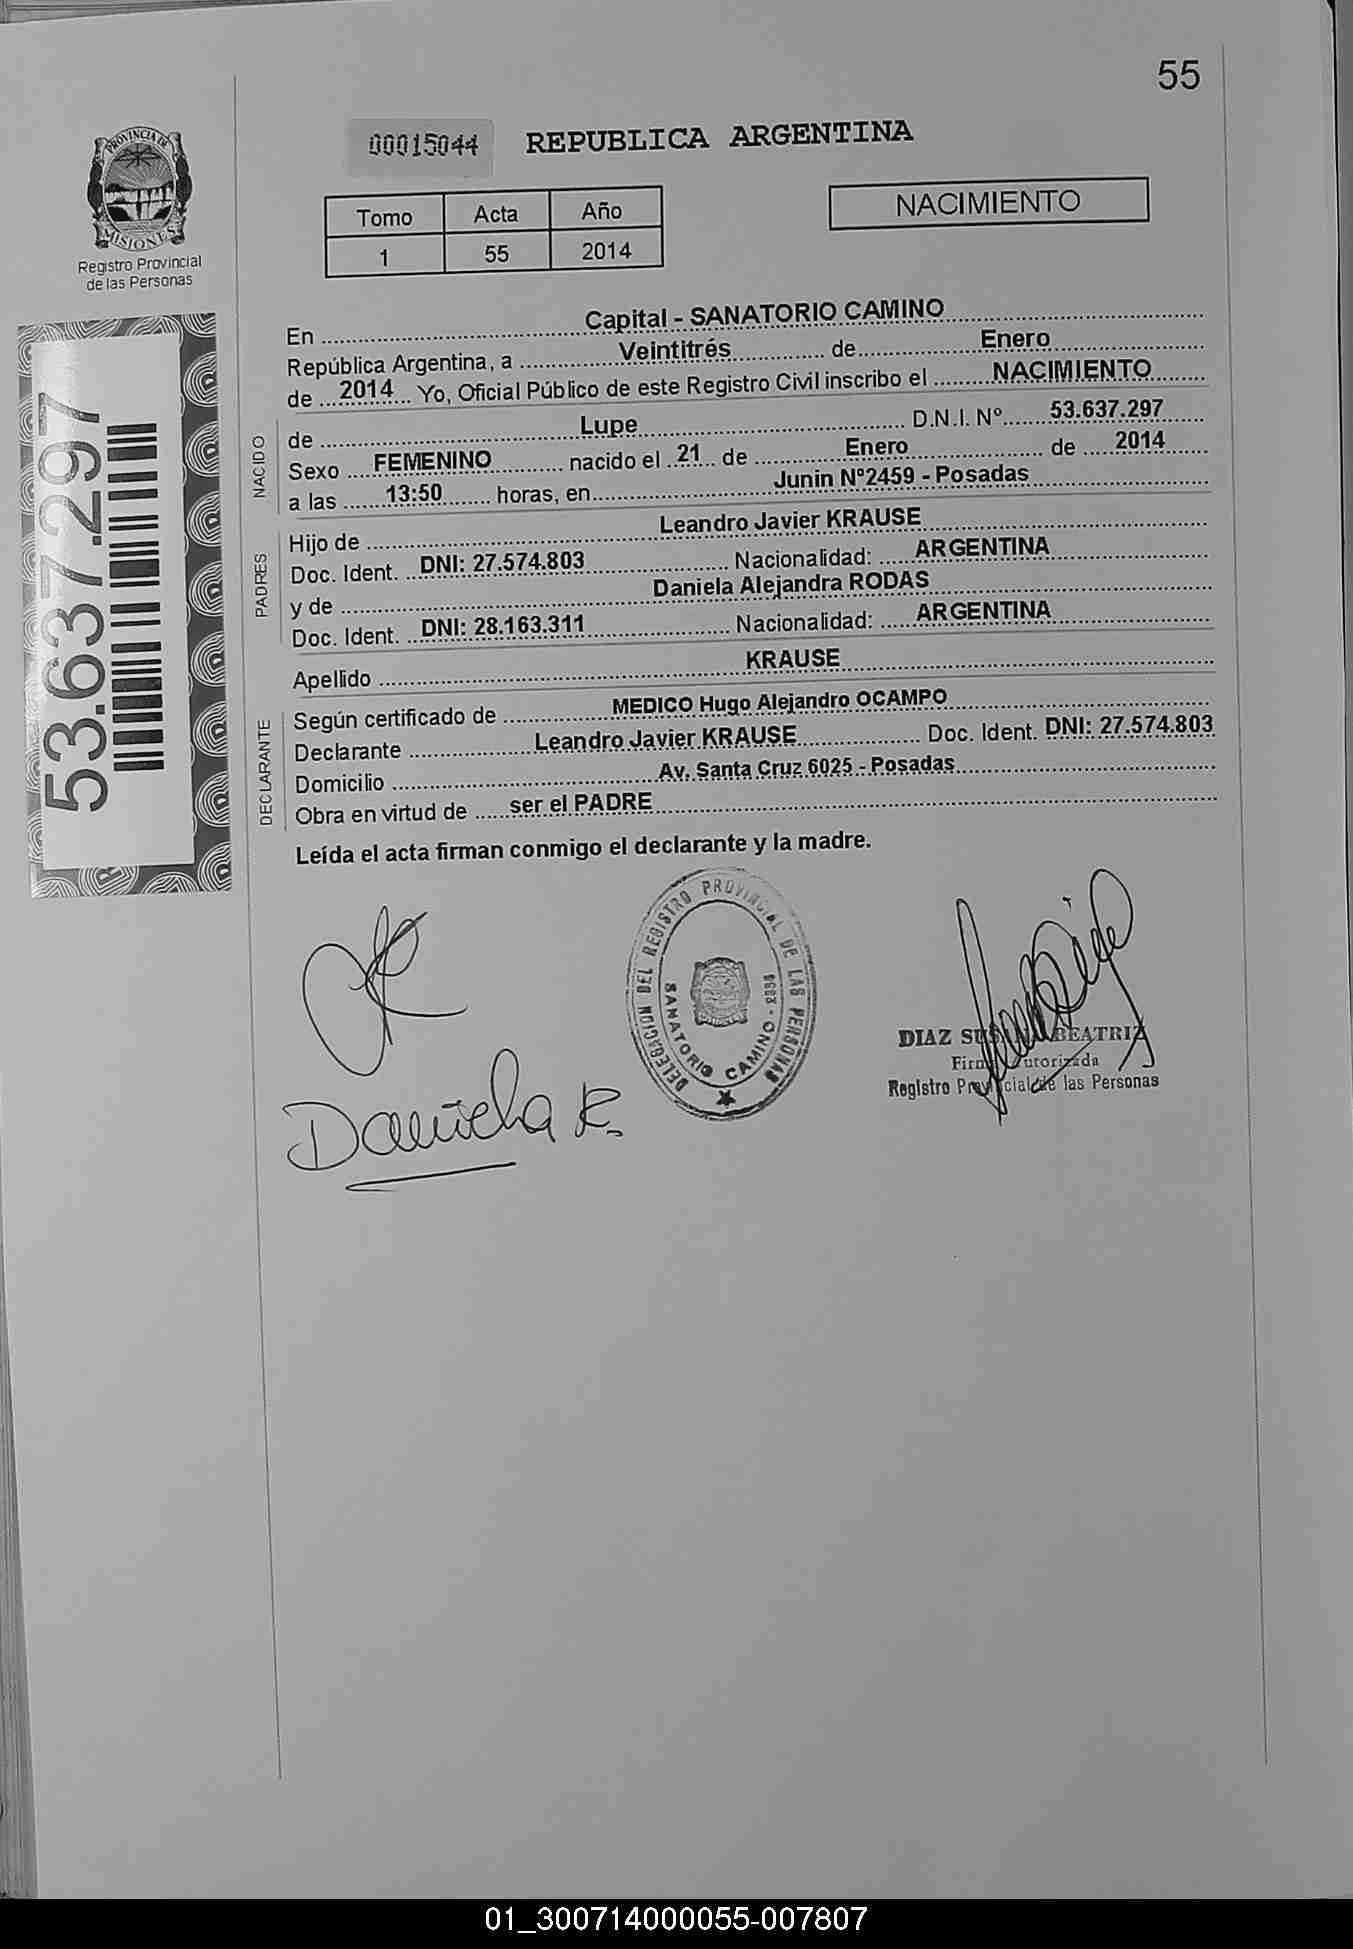 55
PROVINCIA DE
MISIONES
Registro Provincial
de las Personas
00015044 REPUBLICA ARGENTINA
Tomo Acta Año
1 55 2014
NACIMIENTO
53.637.297
En Capital - SANATORIO CAMINO
República Argentina, a Veintitrés de Enero
de 2014 Yo, Oficial Público de este Registro Civil inscribo el NACIMIENTO
NACIDO
de Lupe D.N.I. Nº 53.637.297
Sexo FEMENINO nacido el 21 de Enero de 2014
a las 13:50 horas, en Junin Nº2459 - Posadas
PADRES
Hijo de Leandro Javier KRAUSE
Doc. Ident. DNI: 27.574.803 Nacionalidad: ARGENTINA
y de Daniela Alejandra RODAS
Doc. Ident. DNI: 28.163.311 Nacionalidad: ARGENTINA
Apellido KRAUSE
DECLARANTE
Según certificado de MEDICO Hugo Alejandro OCAMPO
Declarante Leandro Javier KRAUSE Doc. Ident. DNI: 27.574.803
Domicilio Av. Santa Cruz 6025 - Posadas
Obra en virtud de ser el PADRE
Leída el acta firman conmigo el declarante y la madre.
DELEGACION DEL REGISTRO PROVINCIAL DE LAS PERSONAS
SANATORIO CAMINO
Daniela R.
DIAZ SUSANA BEATRIZ
Firma Autorizada
Registro Provincial de las Personas
01_300714000055-007807